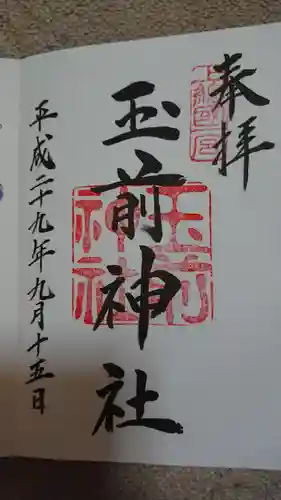 奉拝
玉前神社
平成二十九年九月十五日
玉前
神社